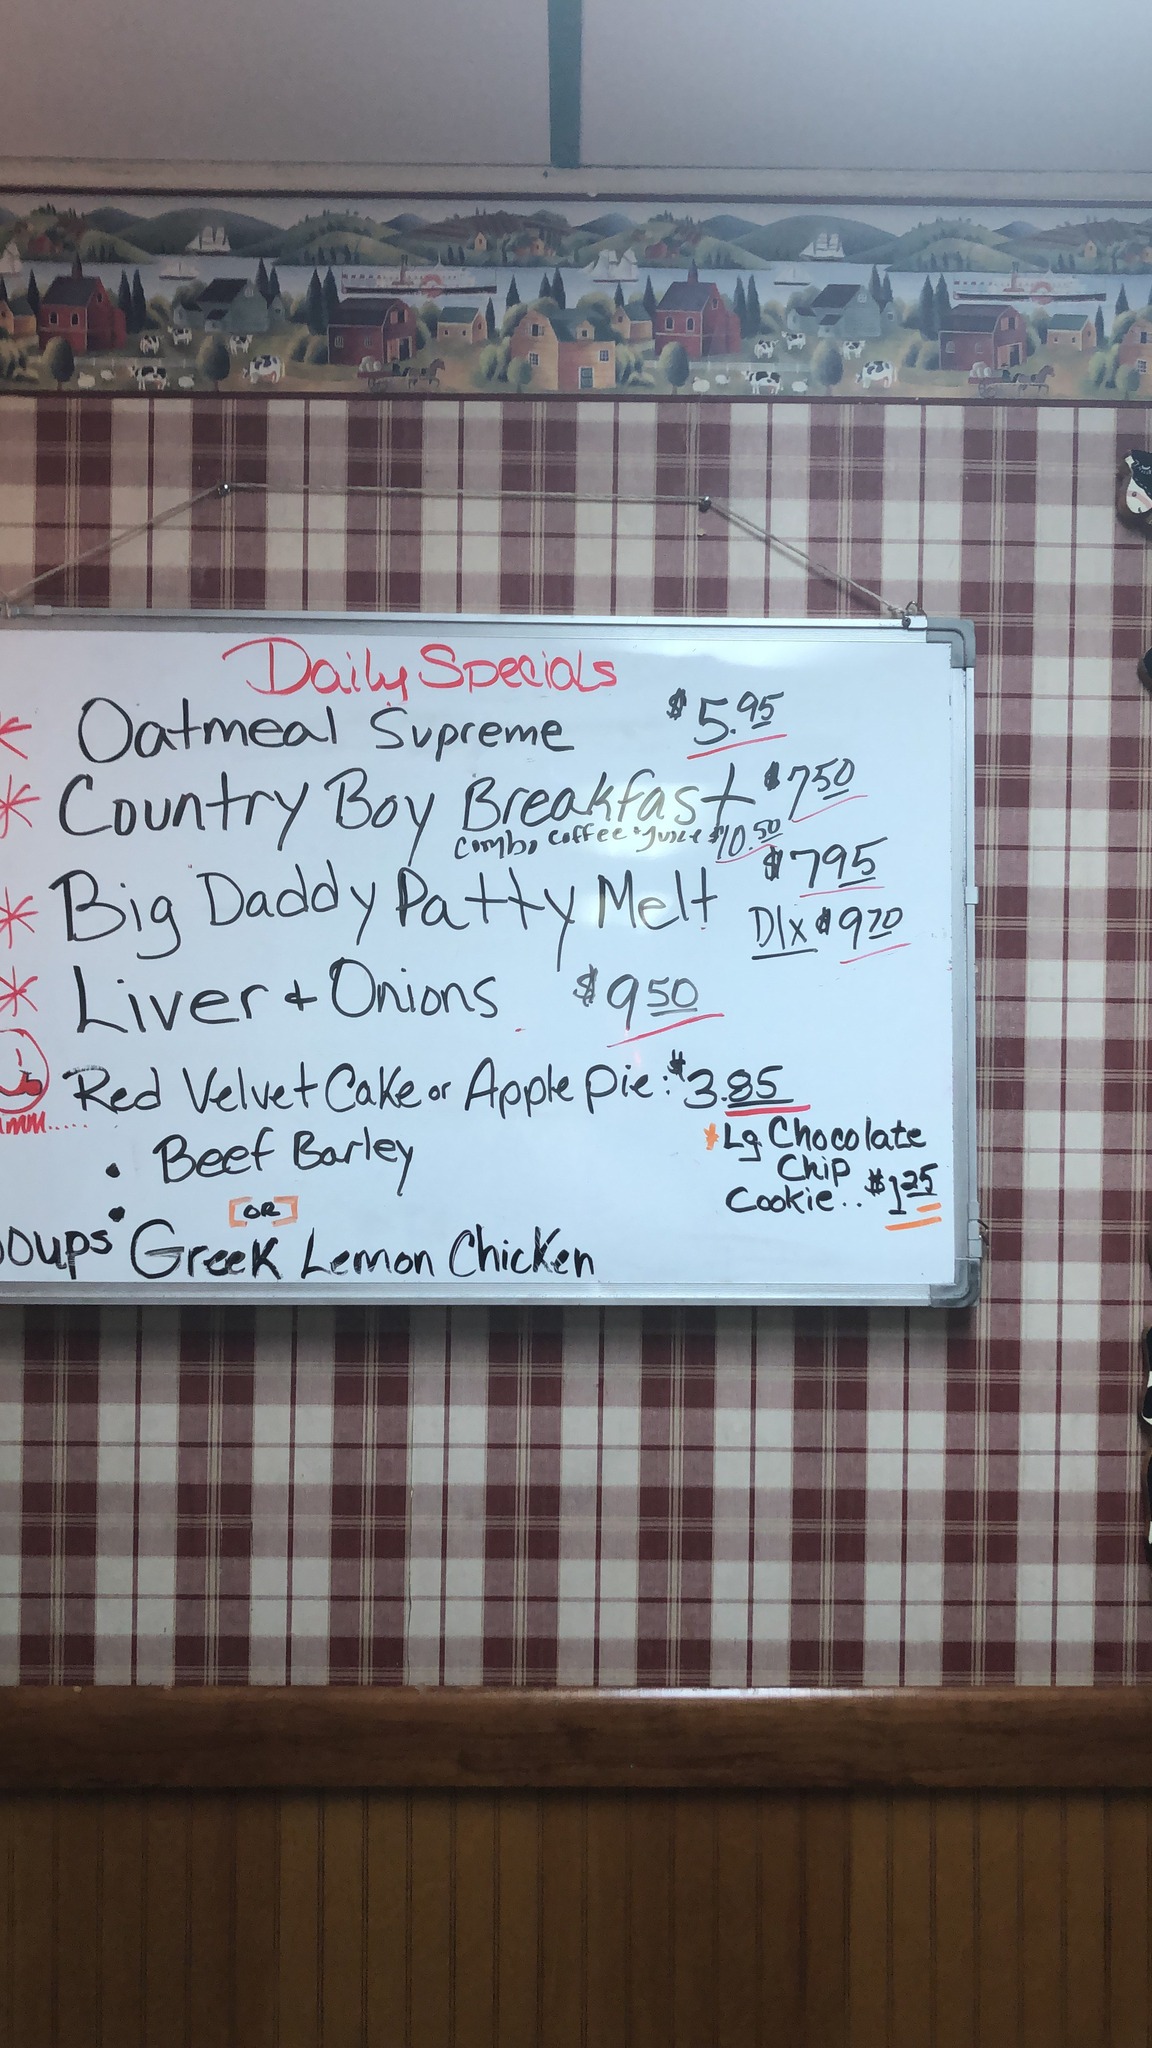 Daily Specials
Oatmeal Supreme $5.95
Country Boy Breakfast $7.50
Combo Coffee + Juice $10.50
Big Daddy Patty Melt $7.95
Dlx $9.70
Liver + Onions $9.50
Red Velvet Cake or Apple Pie: $3.85
mm.....
• Beef Barley
[OR]
oups • Greek Lemon Chicken
* Lg Chocolate
Chip
Cookie.. $1.25